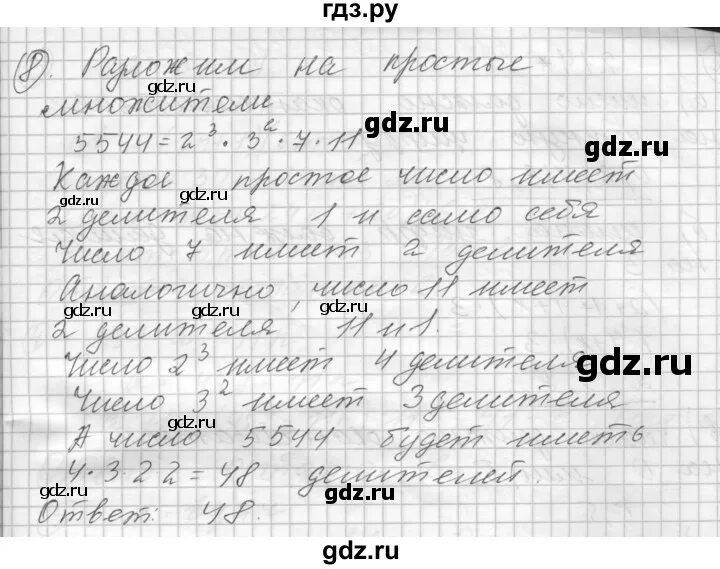 гдз.ру
8. Разложим на простые
множители
5544 = 2³ · 3² · 7 · 11
Каждое простое число имеет
2 делителя 1 и само себя
Число 7 имеет 2 делителя
Аналогично, число 11 имеет
2 делителя 11 и 1.
Число 2³ имеет 4 делителя
Число 3² имеет 3 делителя
А число 5544 будет иметь
4·3·2·2 = 48 делителей.
Ответ: 48.
gdz.ru
gdz.ru
gdz.ru
gdz.ru
gdz.ru
gdz.ru
gdz.ru
gdz.ru
gdz.ru
gdz.ru
gdz.ru
gdz.ru
gdz.ru